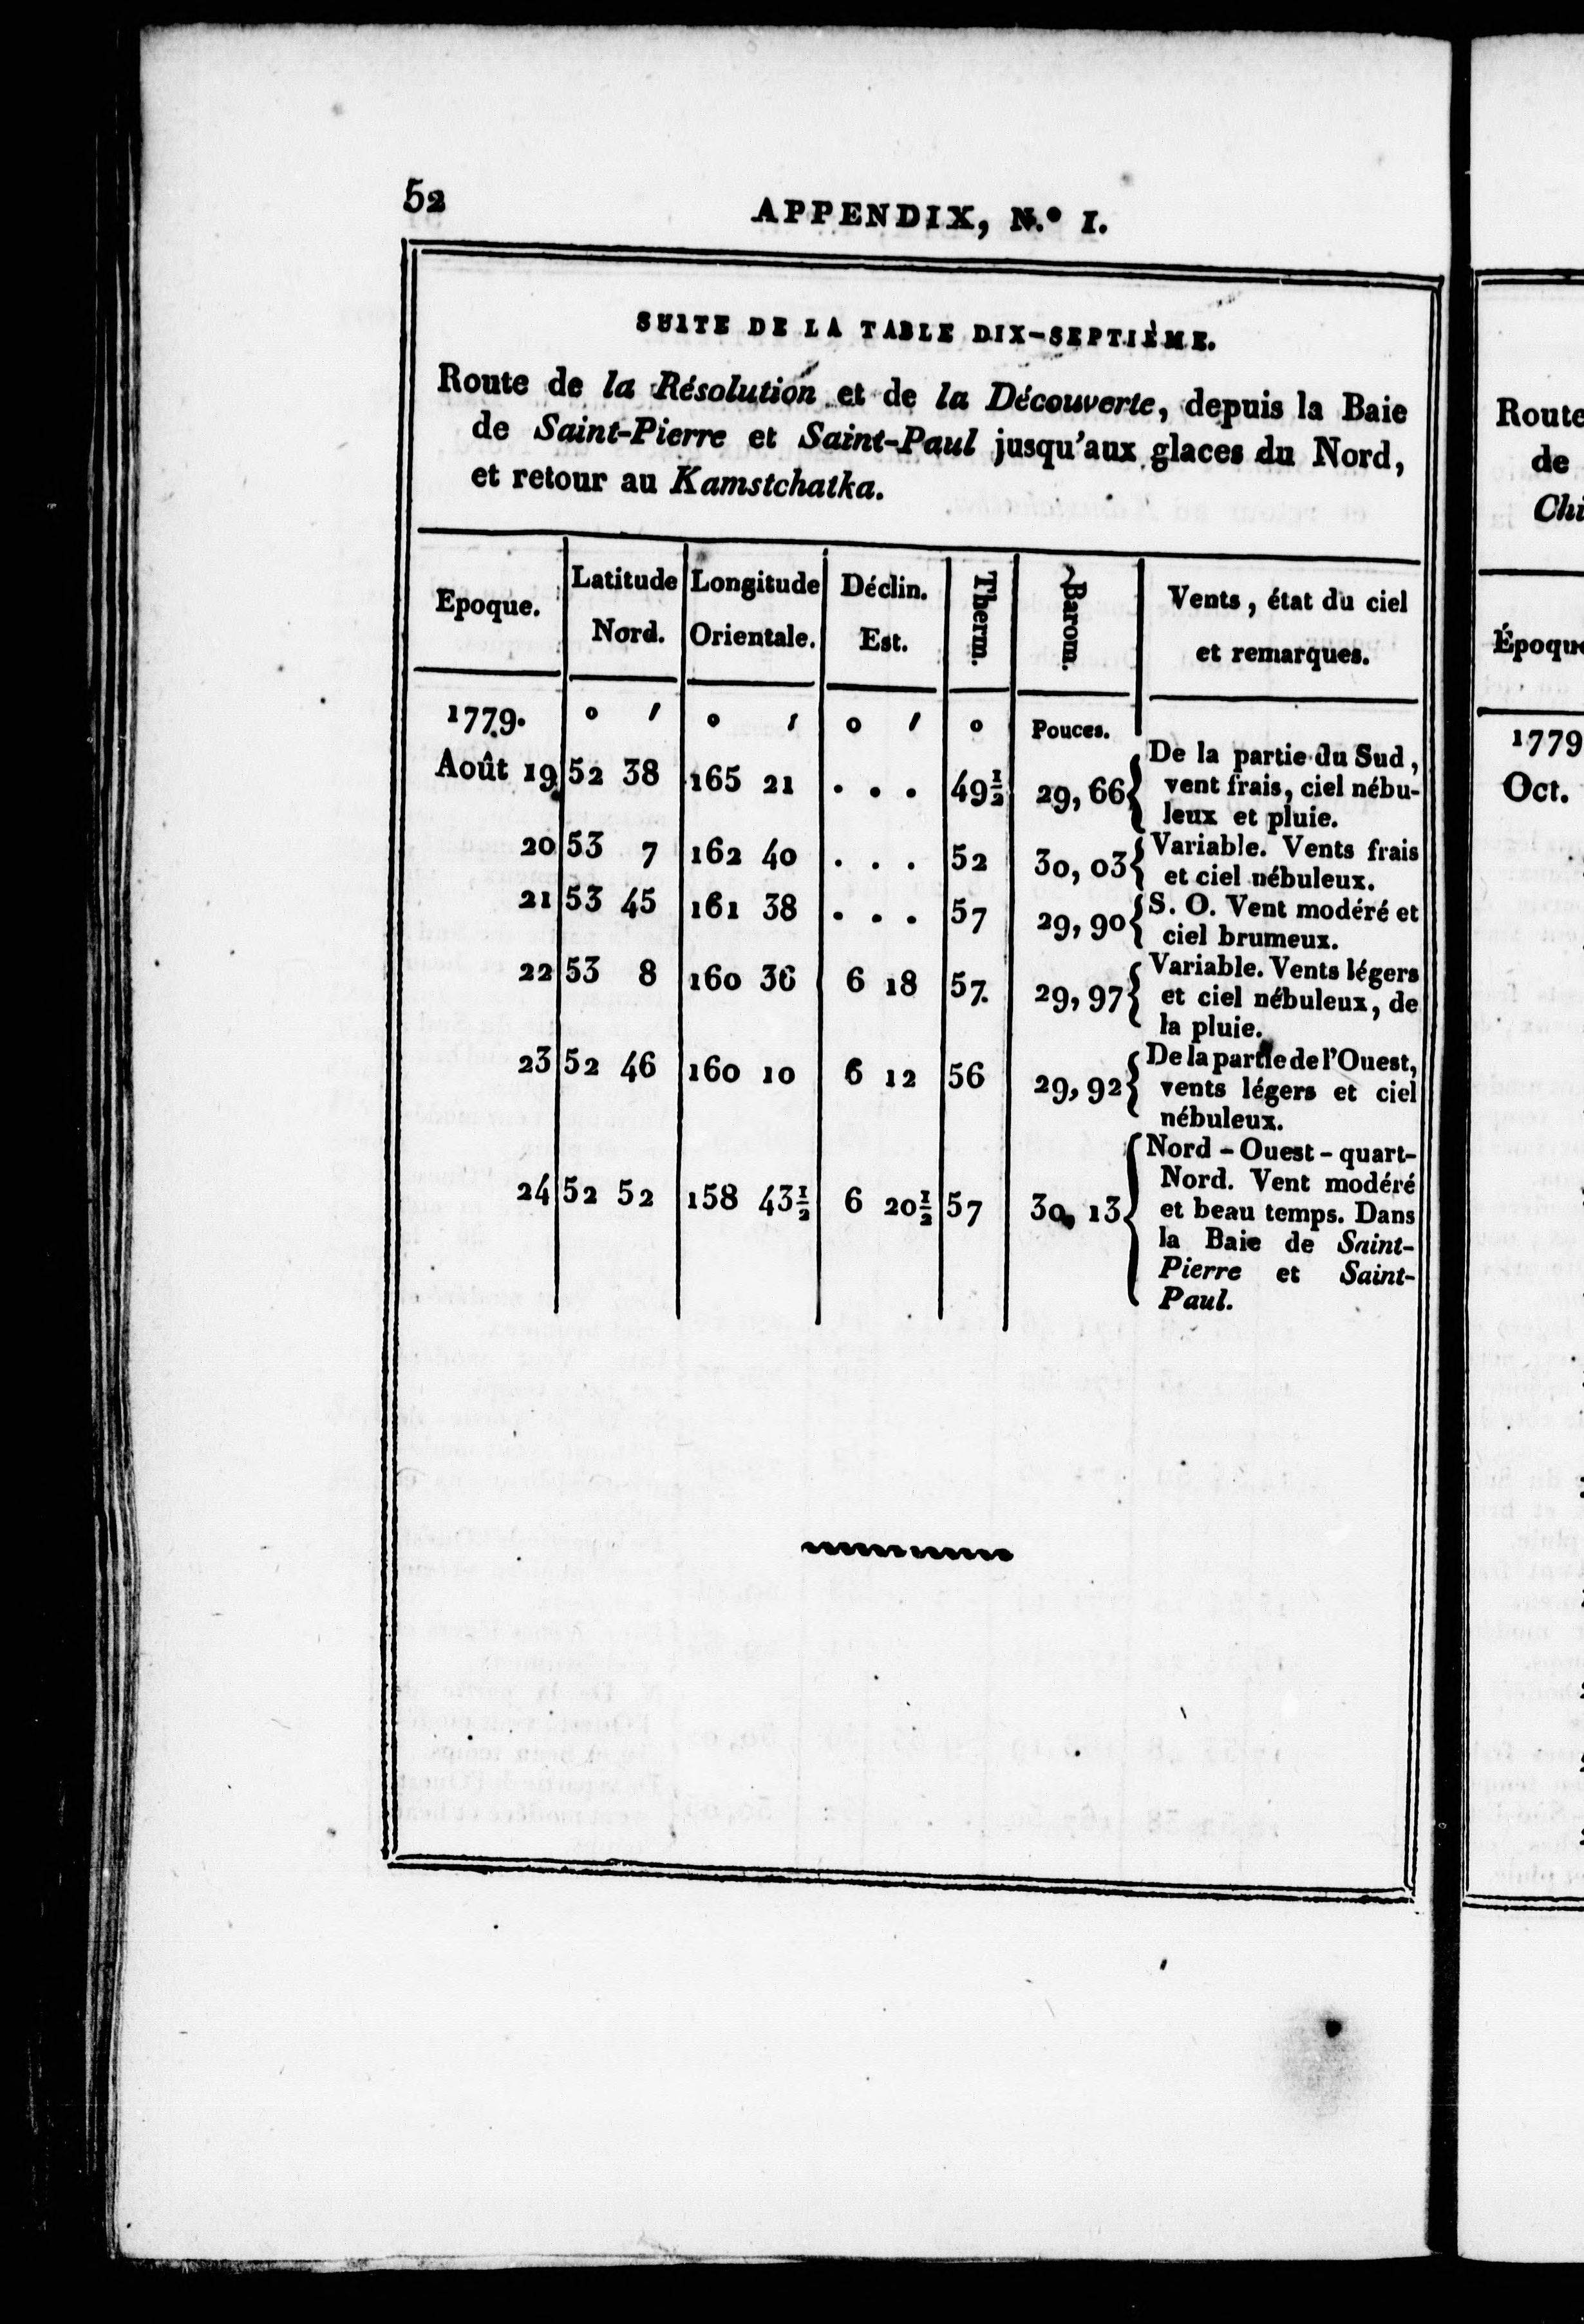 52
APPENDIX, N.º I.
SUITE DE LA TABLE DIX-SEPTIÈME.
Route de la Résolution et de la Découverte, depuis la Baie
de Saint-Pierre et Saint-Paul jusqu'aux glaces du Nord,
et retour au Kamstchatka.
Epoque. Latitude Nord. Longitude Orientale. Déclin. Est. Therm. Barom. Vents, état du ciel et remarques.
1779. ° ′ ° ′ ° ′ ° Pouces.
Août 19 52 38 165 21 . . . 49½ 29, 66 { De la partie du Sud,
vent frais, ciel nébu-
leux et pluie.
20 53 7 162 40 . . . 52 30, 03 { Variable. Vents frais
et ciel nébuleux.
21 53 45 161 38 . . . 57 29, 90 { S. O. Vent modéré et
ciel brumeux.
22 53 8 160 36 6 18 57. 29, 97 { Variable. Vents légers
et ciel nébuleux, de
la pluie.
23 52 46 160 10 6 12 56 29, 92 { De la partie de l'Ouest,
vents légers et ciel
nébuleux.
24 52 52 158 43½ 6 20½ 57 30, 13 { Nord - Ouest - quart-
Nord. Vent modéré
et beau temps. Dans
la Baie de Saint-
Pierre et Saint-
Paul.
Route
de
Chi
Époque
1779
Oct.